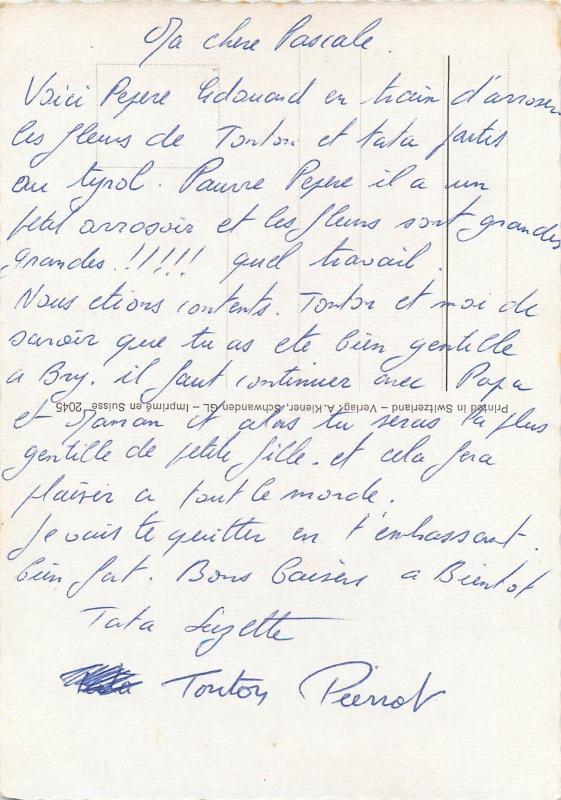 Ma chere Pascale.
Voici Pepere Edouard en train d'arroser
les fleurs de Tonton et tata partis
au tyrol. Pauvre Pepere il a un
petit arrosoir et les fleurs sont grandes
grandes.!!!!!! quel travail.
Nous etions contents. Tonton et moi de
savoir que tu as ete bien gentille
a Bry. il faut continuer avec Papa
Printed in Switzerland – Verlag: A. Kiener, Schwanden GL – Imprimé en Suisse 2045
et Maman et alors tu seras la plus
gentille de petite fille. et cela fera
plaisir a tout le monde.
je vais te quitter en t'embrassant.
bien fort. Bons baisers a Bientot
Tata Suzette
Tonton Pierrot